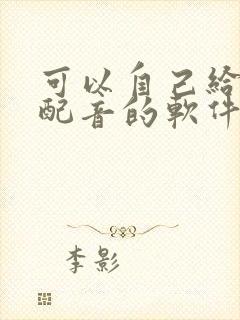 可以自己给
配音的軟件
李影